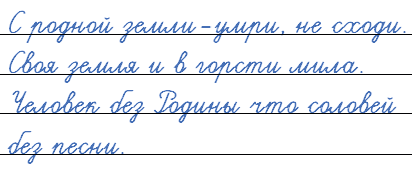 С родной земли - умри, не сходи.
Своя земля и в горсти мила.
Человек без Родины что соловей
без песни.